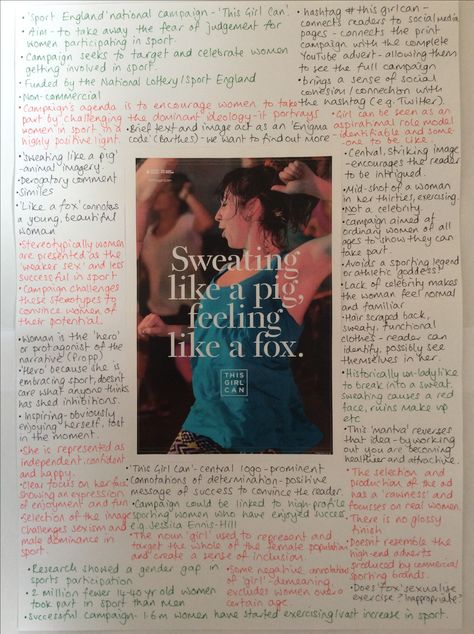 • 'Sport England' national campaign - 'This Girl Can'.
• Aim - to take away the fear of judgement for
women participating in sport.
• Campaign seeks to target and celebrate women
getting involved in sport.
• Funded by the National Lottery/Sport England
• Non-commercial
• Campaign's agenda is to encourage women to take
part by challenging the dominant ideology - it portrays
women in sport in a
highly positive light.
• Brief text and image act as an 'Enigma
code' (Barthes) - we want to find out more
• hashtag # this girl can -
connects readers to social media
pages - connects the print
campaign with the complete
YouTube advert - allowing them
to see the full campaign
• brings a sense of social
cohesion/connection with
the hashtag (e.g. Twitter).
• Girl can be seen as an
aspirational role model
- identifiable and some-
one to be like.
• 'Sweating like a pig'
- animal imagery
• Derogatory comment
• Similes
• 'Like a fox' connotes
a young, beautiful
woman
• Stereotypically women
are presented as the
'weaker sex' and less
successful in sport.
• Campaign challenges
these stereotypes to
convince women of
their potential.
• Woman is the 'hero'
or protagonist of the
narrative (Propp)
• 'Hero' because she is
embracing sport, doesn't
care what anyone thinks,
has shed inhibitions.
• Inspiring - obviously
enjoying herself, lost
in the moment.
• She is represented as
independent, confident
and happy.
• Clear focus on her face
showing an expression
of enjoyment and fun
• Selection of the image
challenges sexism and
male dominance in
sport.
Sweating
like a pig,
feeling
like a fox.
THIS
GIRL
CAN
• Central, striking image
- encourages the reader
to be intrigued.
• Mid-shot of a woman
in her thirties, exercising.
• Not a celebrity.
• Campaign aimed at
ordinary women of all
ages to show they can
take part.
• Avoids a sporting legend
or athletic 'goddess'
• Lack of celebrity makes
the woman feel normal
and familiar
• Hair scraped back,
sweaty, functional
clothes - reader can
identify, possibly see
themselves in her.
• Historically un-ladylike
to break into a sweat.
Sweating causes a red
face, ruins make up
etc
• This 'mantra' reverses
that idea - by working
out you are becoming
healthier and attractive.
• 'This Girl Can' - central logo - prominent
• Connotations of determination - positive
message of success to convince the reader.
• Campaign could be linked to high-profile
sporting women who have enjoyed success
e.g Jessica Ennis-Hill
• The noun 'girl' used to represent and
target the whole of the female population
and create a sense of inclusion.
• Some negative connotations
of 'girl' - demeaning,
excludes women over a
certain age.
• The selection and
production of the ad
has a 'rawness' and
focusses on real women.
• There is no glossy
finish
• Doesn't resemble the
high-end adverts
produced by commercial
sporting brands.
• Does 'fox' sexualise
exercise? Inappropriate?
• Research showed a gender gap in
sports participation
• 2 million fewer 14-40 yr old women
took part in sport than men
• Successful campaign - 1.6m women have started exercising/vast increase in sport.